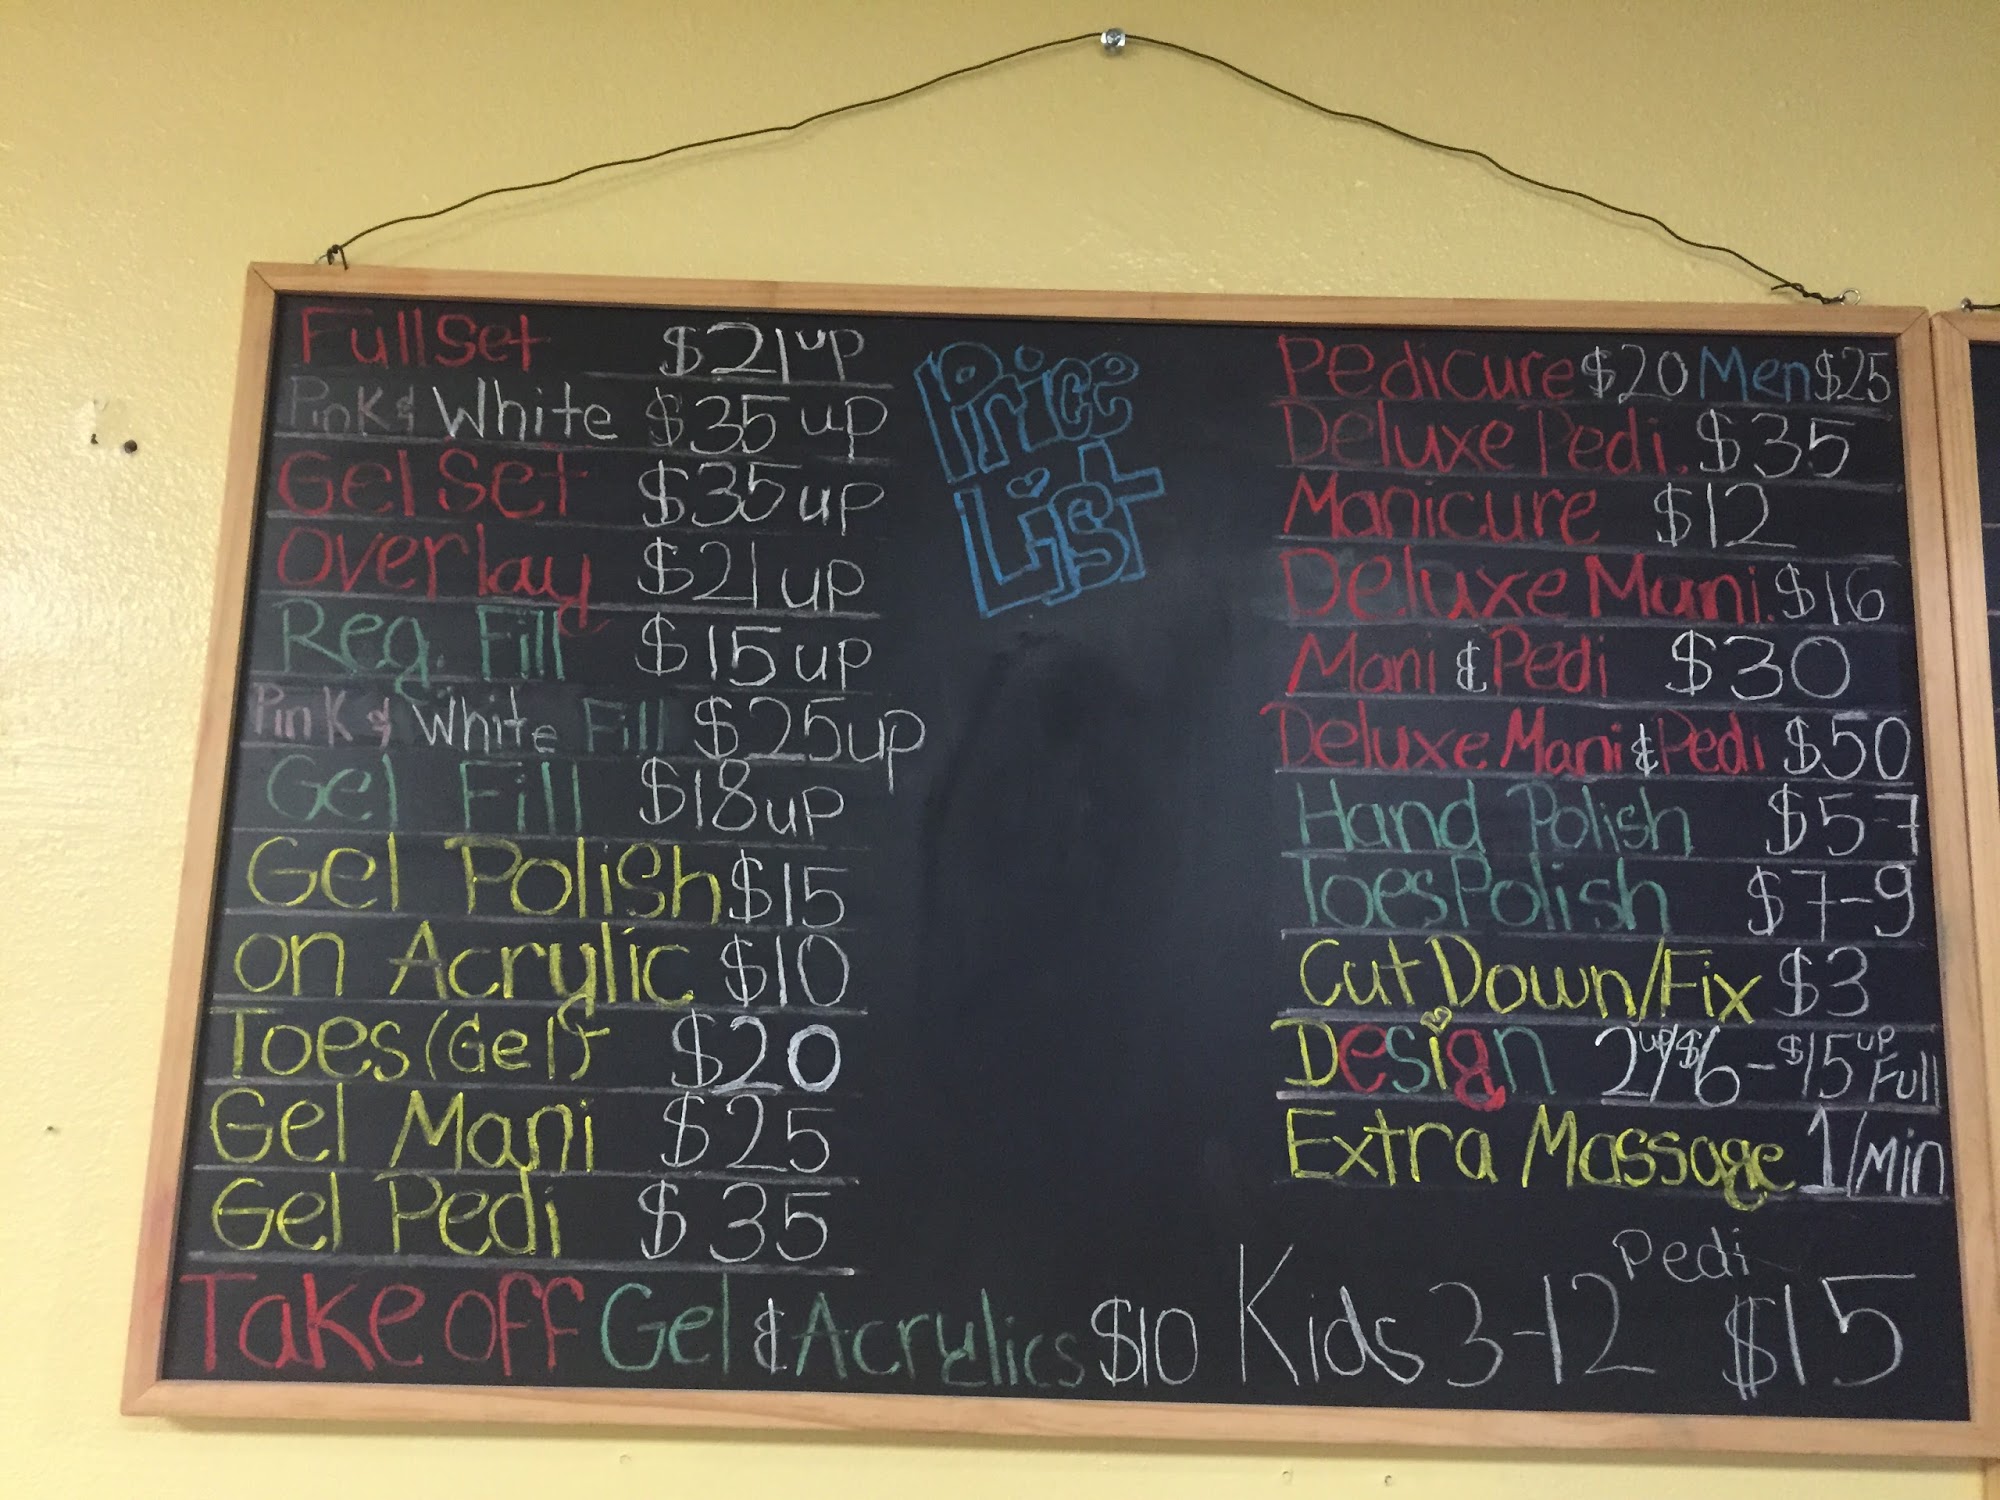 Full Set $21 up
Pink & White $35 up
Gel Set $35 up
Overlay $21 up
Reg. Fill $15 up
Pink & White Fill $25 up
Gel Fill $18 up
Gel Polish $15
on Acrylic $10
Toes (Gel) $20
Gel Mani $25
Gel Pedi $35
Take off Gel & Acrylics $10
Price
List
Pedicure $20 Men $25
Deluxe Pedi. $35
Manicure $12
Deluxe Mani. $16
Mani & Pedi $30
Deluxe Mani & Pedi $50
Hand Polish $5-7
Toes Polish $7-9
Cut Down/Fix $3
Design 2up/$6-$15up Full
Extra Massage 1/min
Kids 3-12 Pedi $15